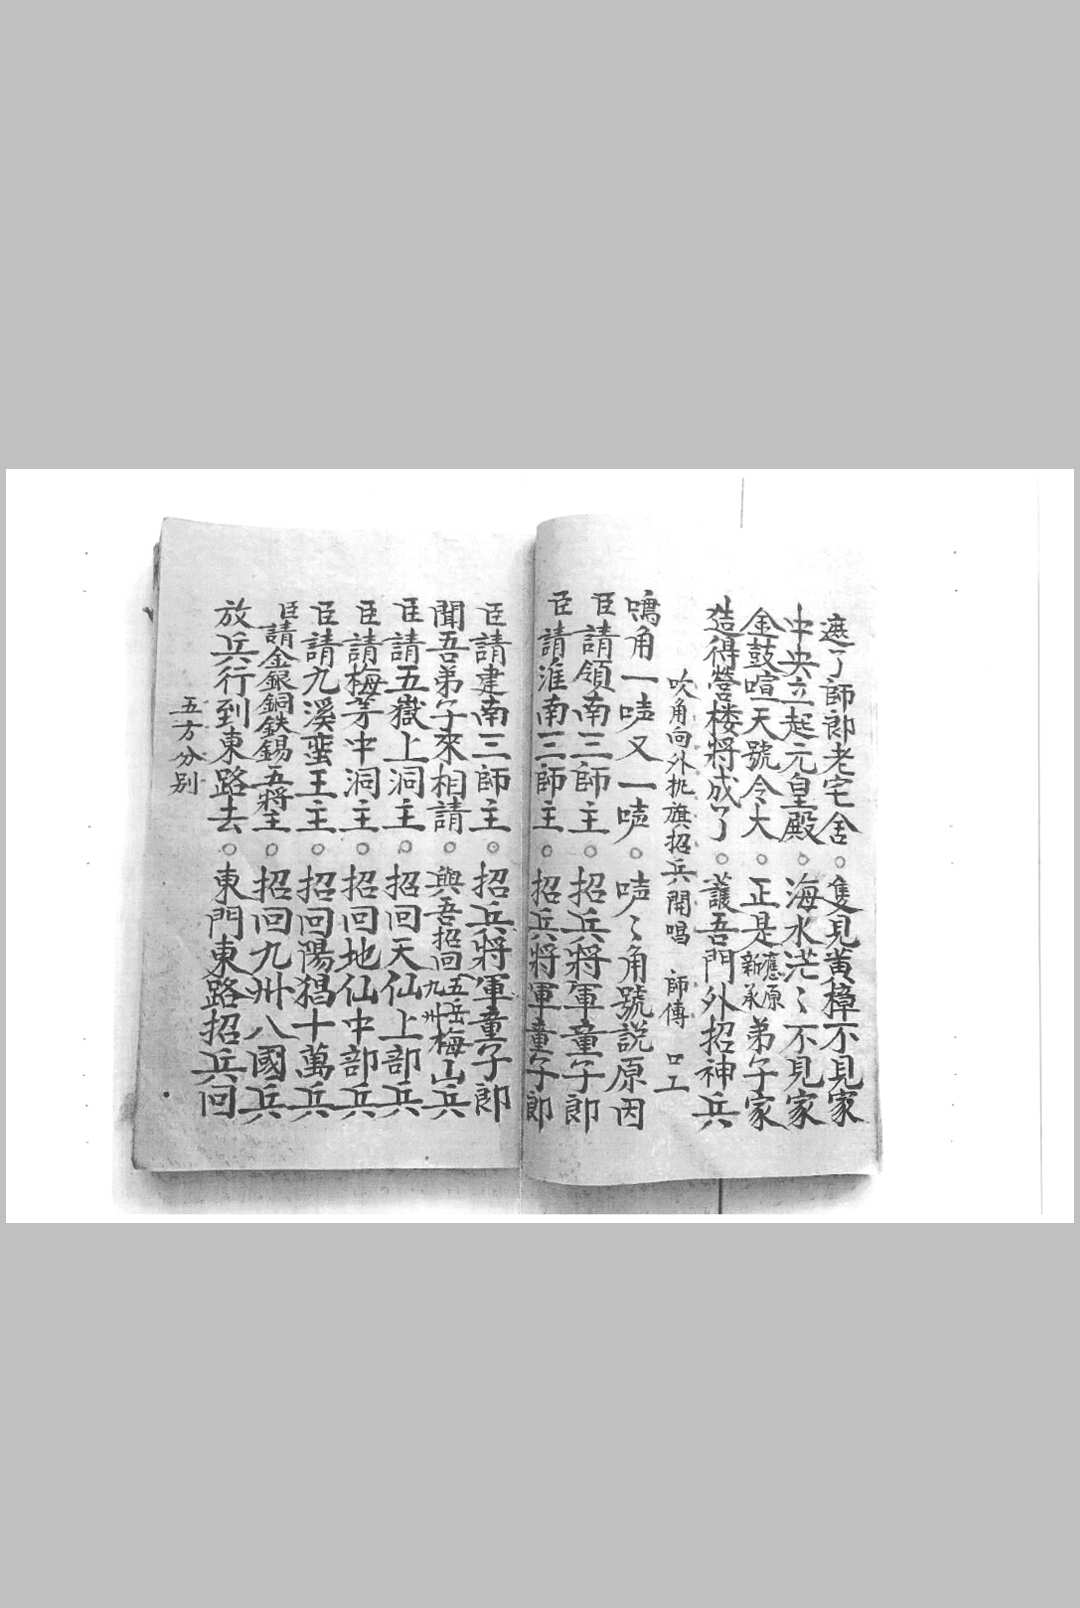 遮了師郎老宅舍○隻見黄樟不見家
中央立起元皇殿○海水茫〻不見家
金鼓喧天號令大○正是應原新承弟子家
造得營楼將成了○護吾門外招神兵
吹角向外扎旗招兵開唱 師傳 口工
鳴角一唛又一唛○唛〻角號説原因
臣請領南三師主○招兵將軍童子郎
臣請淮南三師主○招兵將軍童子郎
臣請建南三師主○招兵將軍童子郎
聞吾弟子來相請○與吾招回五岳九州梅山兵
臣請五嶽上洞主○招回天仙上部兵
臣請梅岺中洞主○招回地仙中部兵
臣請九溪蛮王主○招回陽猖十萬兵
臣請金銀銅鉄錫五將主○招回九州八國兵
放兵行到東路去○東門東路招兵回
五方分别